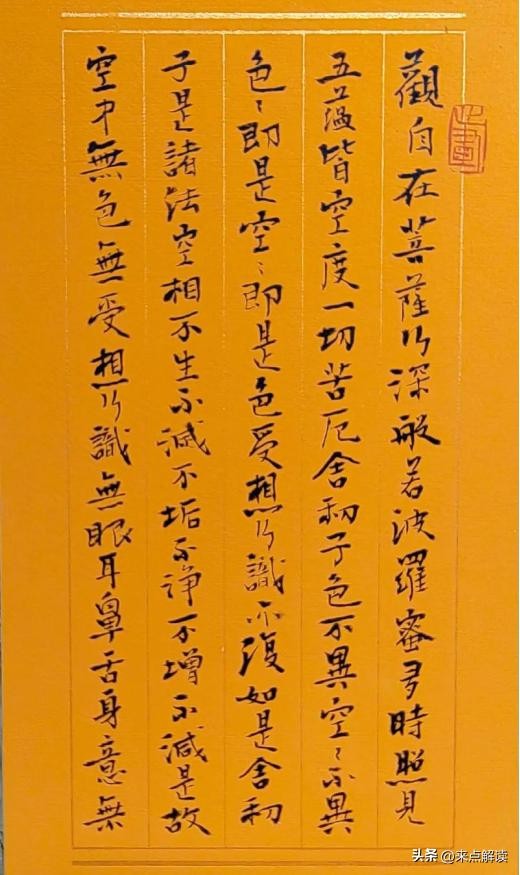 觀自在菩薩行深般若波羅蜜多時照見
五蘊皆空度一切苦厄舍利子色不異空〻不異
色〻即是空〻即是色受想行識亦復如是舍利
子是諸法空相不生不滅不垢不淨不增不減是故
空中無色無受想行識無眼耳鼻舌身意無
头条 @来点解读